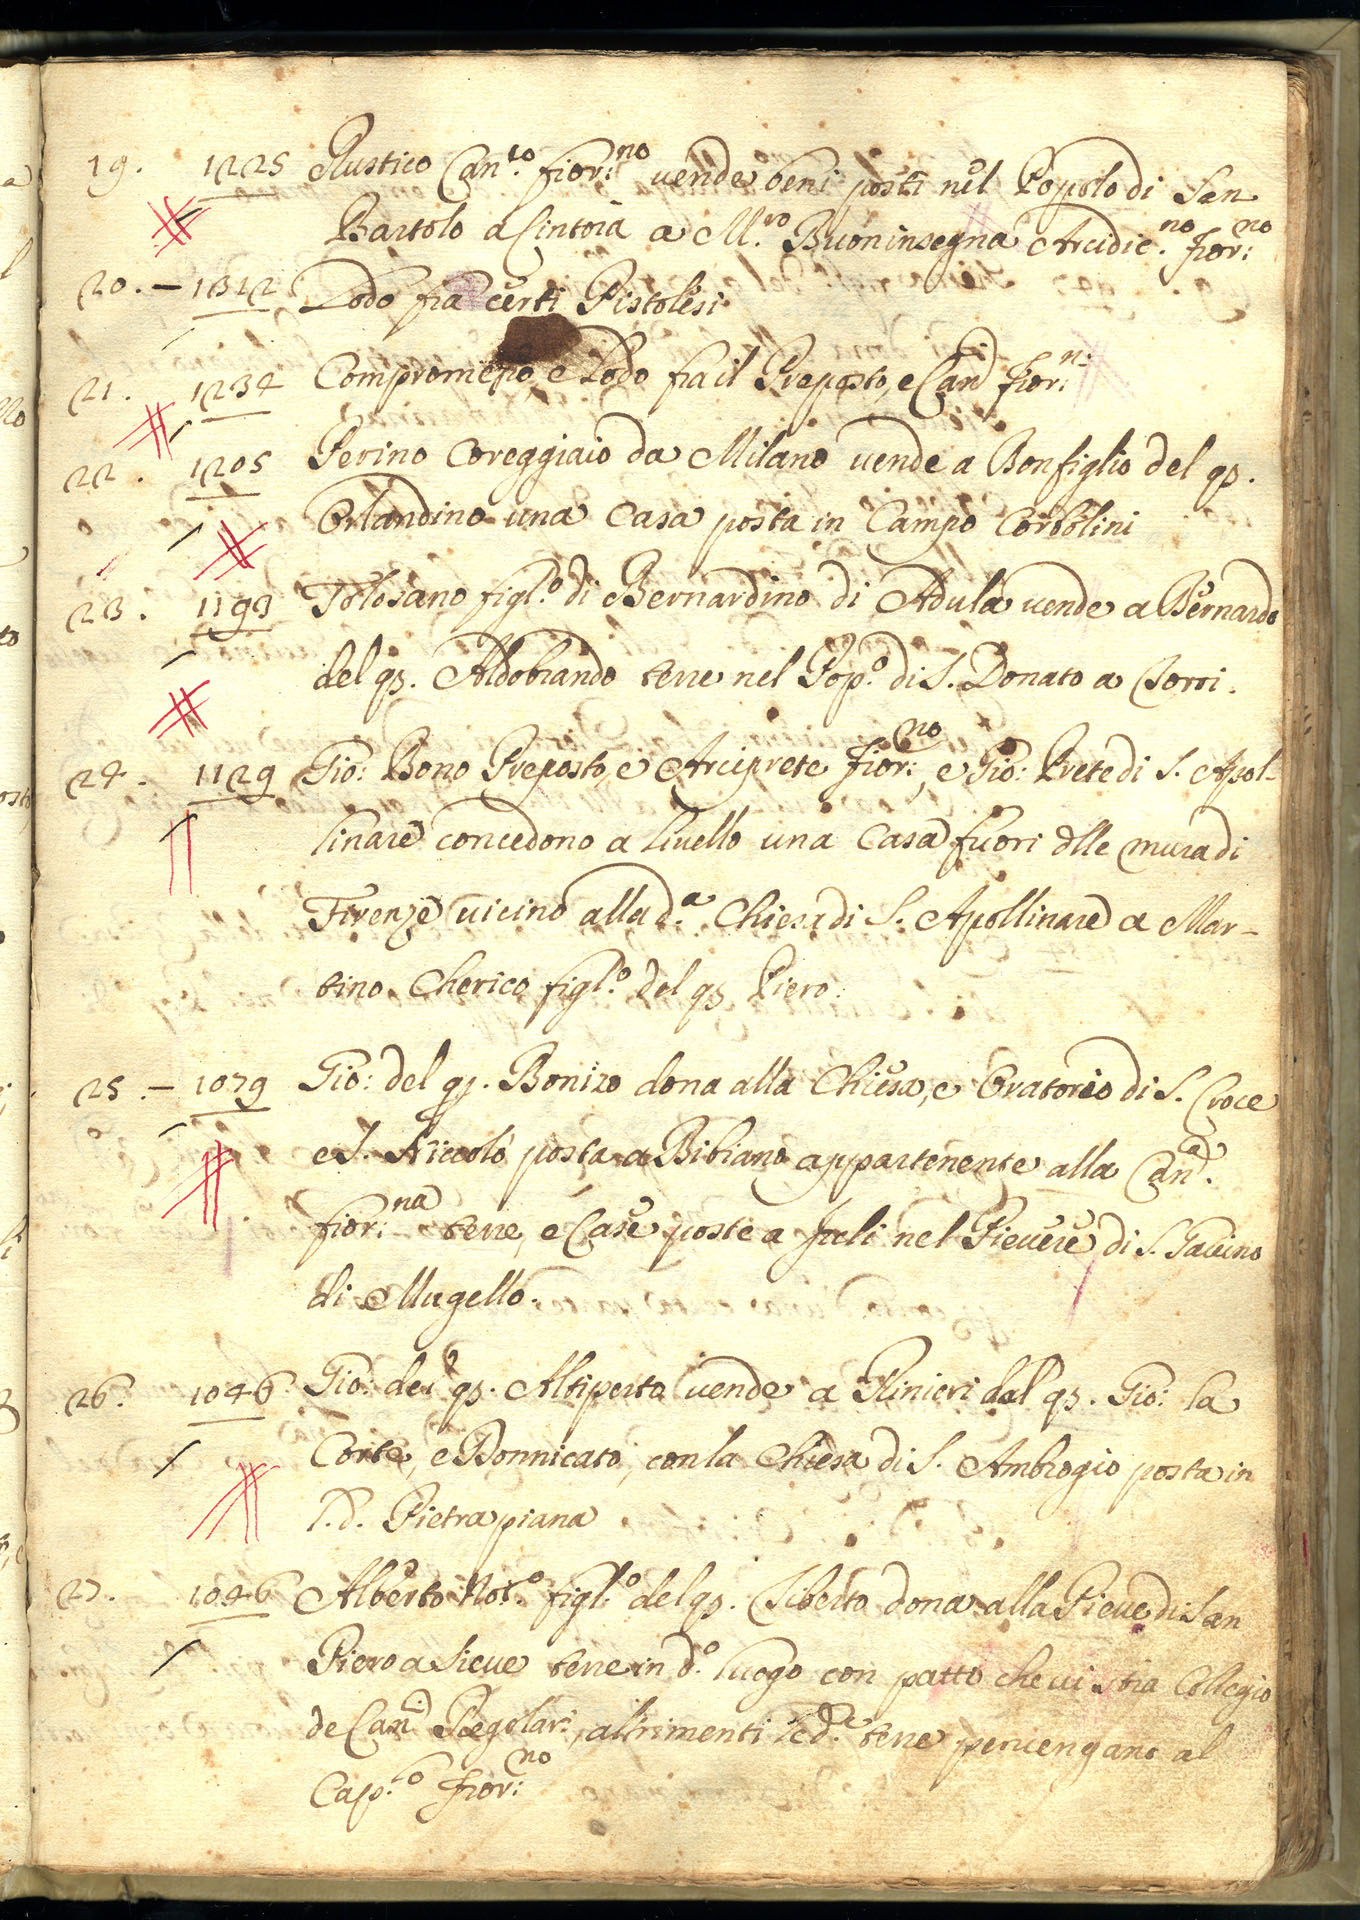 19. 1225 Rustico Can.co fior:no vende beni posti nel Popolo di San
Bartolo a Cintoia a M.ro Buoninsegna Arcidic.no fior:no
20. – 1312 Lodo fra certi Pistolesi
21. 1234 Compromesso, e Lodo fra il Preposto, e Can.i fior:ni
22. 1205 Perino Coreggiaio da Milano vende a Bonfiglio del qs.
Orlandino una Casa posta in Campo Corbolini
23. 1193 Tolosano figl.o di Bernardino di Adula vende a Bernardo
del qs. Aldobrando terre nel Pop.o di S. Donato a Torri.
24. 1129 Gio: Bono Preposto, e Arciprete fior:no, e Gio: Prete di S. Apol-
linare concedono a livello una Casa fuori dlle mura di
Firenze vicino alla d.a Chiesa di S. Apollinare a Mar-
tino Cherico figl.o del qs Piero.
25. – 1079 Gio: del qs. Bonizo dona alla Chiesa, e Oratorio di S. Croce
e S. Niccolò posta a Bibiano appartenente alla Can.ca
fior:na terre, e Case poste a nel Pievere di S. Gavino
di Mugello.
26. 1046 Gio: del qs. Altiperto vende a Rinieri del qs. Gio: la
Corte, e Donnicato, con la Chiesa di S. Ambrogio posta in
l. d. Pietra piana
27. 1046 Alberto Not.o figl.o del qs. Tiberto dona alla Pieve di San
Piero a Sieve terre in d.o luogo con patto che vi stia Collegio
de Can.i Regolari, altrimenti le d.e terre pervengano al
Cap.lo fior:no